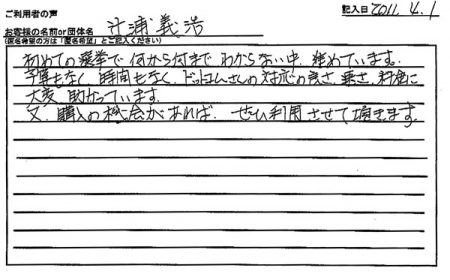 ご利用者の声
記入日 2011. 4. 1
お客様の名前or団体名 辻浦義浩
(匿名希望の方は「匿名希望」とご記入ください)
初めての選挙で何から何まで わからない中、進めています。
予算もなく、時間もなく、ドットコムさんの対応の良さ、早さ、料金に
大変 助かっています。
又、購入の機会があれば、ぜひ利用させて頂きます。